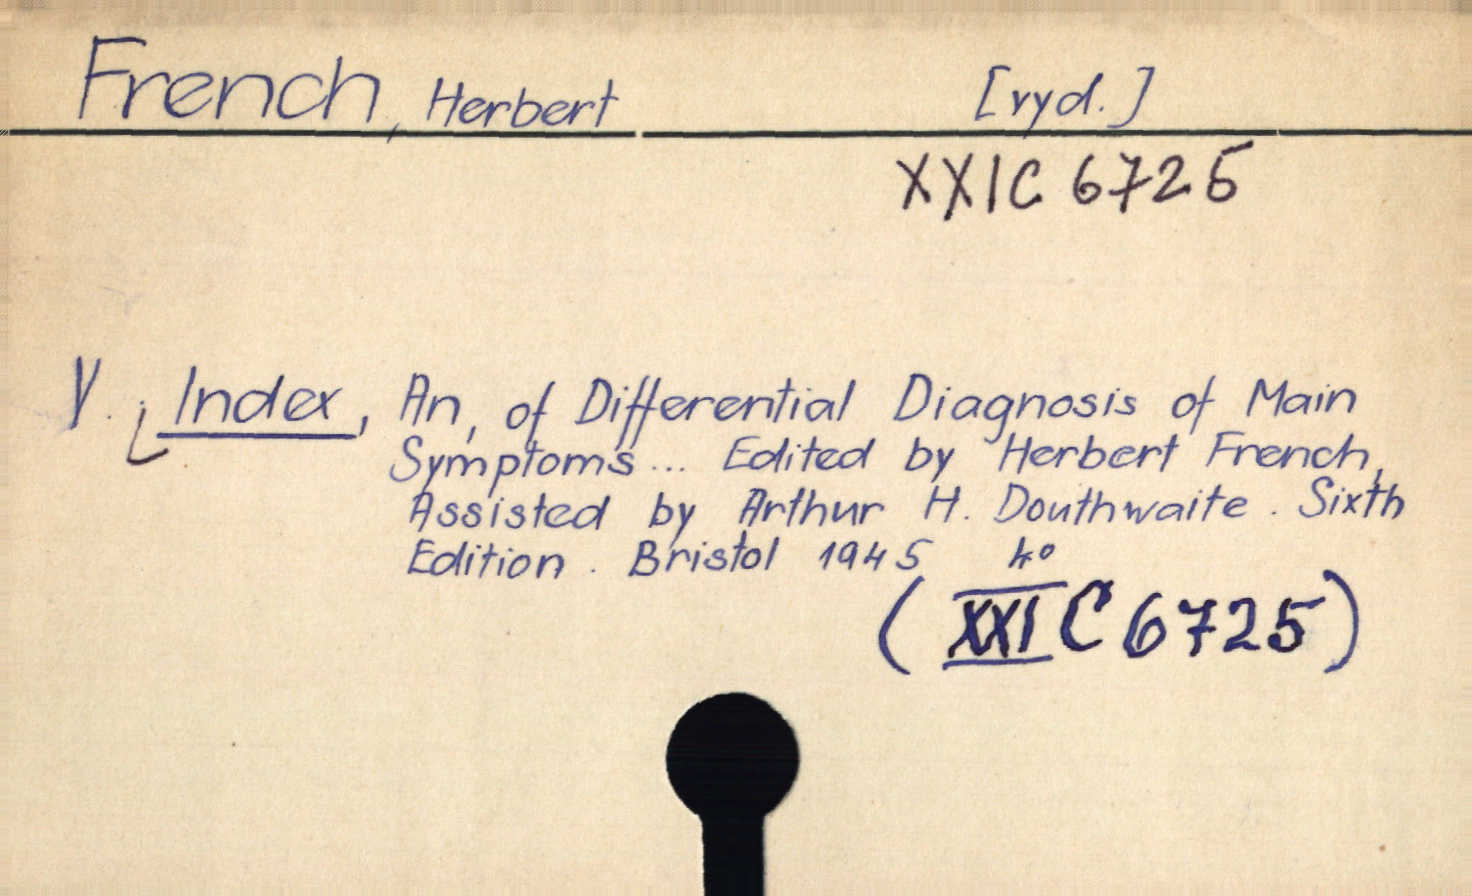 French, Herbert [vyd.]
XXIC 6725
V. Index, An, of Differential Diagnosis of Main
Symptoms... Edited by Herbert French,
Assisted by Arthur H. Douthwaite. Sixth
Edition. Bristol 1945 4°
(XXI C 6725)